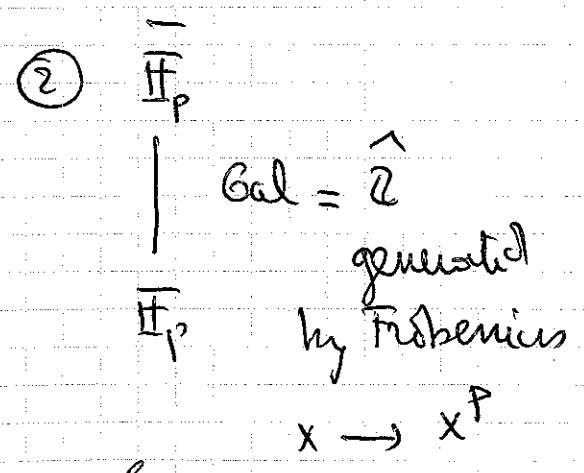 ② $\overline{\mathbb{F}}_p$
| Gal = $\hat{\mathbb{Z}}$
generated
$\mathbb{F}_p$ by Frobenius
x → x^p